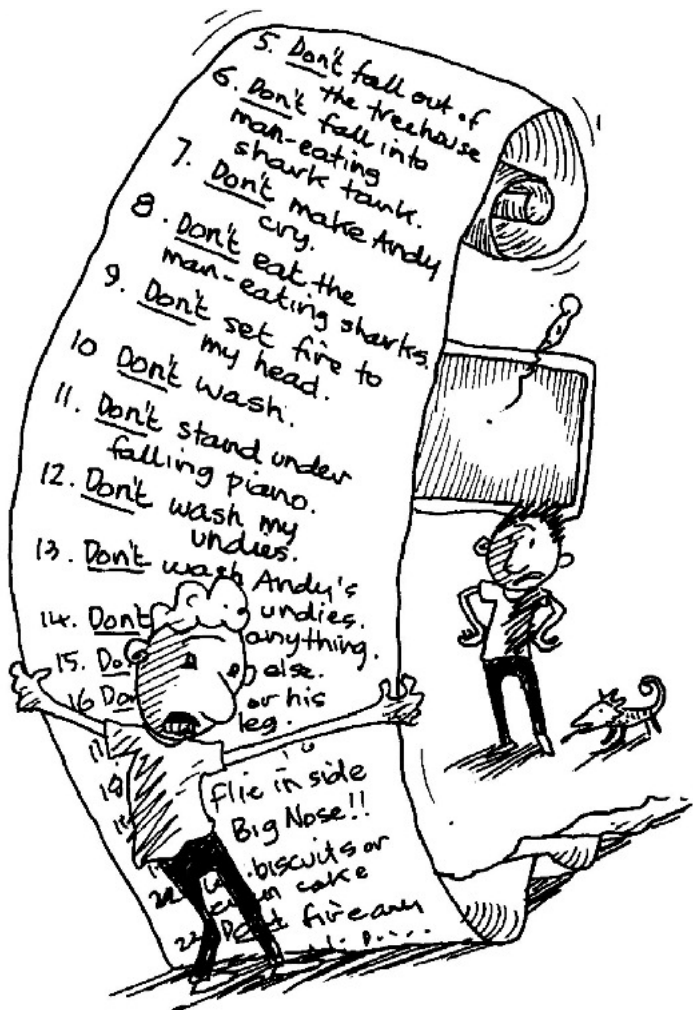 5. Don't fall out of
the treehouse
6. Don't fall into
man-eating
shark tank.
7. Don't make Andy
cry.
8. Don't eat the
man-eating sharks.
9. Don't set fire to
my head.
10 Don't wash.
11. Don't stand under
falling piano.
12. Don't wash my
undies.
13. Don't wash Andy's
undies.
14. Don't
anything
15.
else.
16
or his
leg.
in side
Big Nose!!
biscuits or
cake
fire any